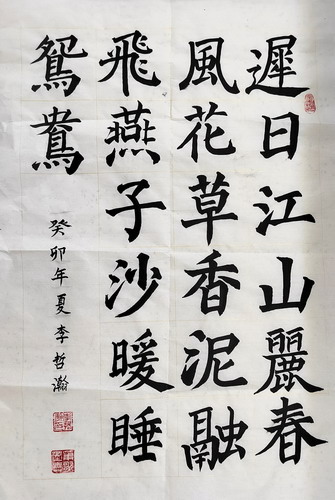 遲日江山麗春
風花草香泥融
飛燕子沙暖睡
鴛鴦
癸卯年夏李哲瀚